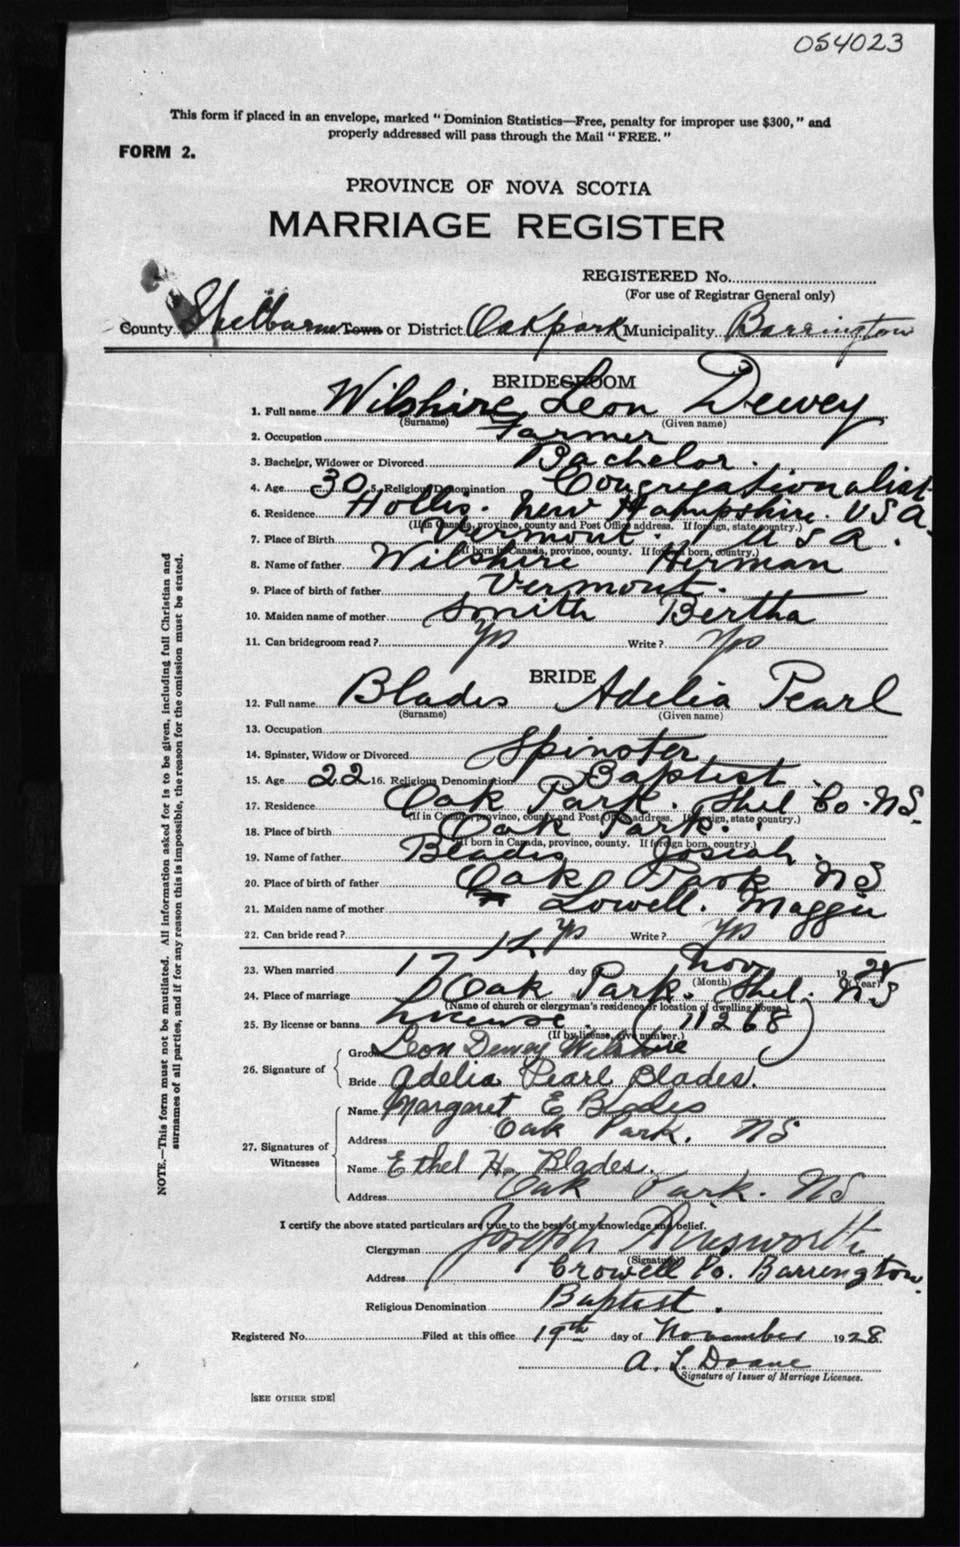 054023
This form if placed in an envelope, marked "Dominion Statistics—Free, penalty for improper use $300," and
properly addressed will pass through the Mail "FREE."
FORM 2.
PROVINCE OF NOVA SCOTIA
MARRIAGE REGISTER
REGISTERED No.
(For use of Registrar General only)
County Shelburne Town or District Oakpark Municipality Barrington
BRIDEGROOM
1. Full name Wilshire Leon Dewey
(Surname) (Given name)
2. Occupation Farmer
3. Bachelor, Widower or Divorced Bachelor.
4. Age 30 5. Religious Denomination Congregationalist
6. Residence Hollis. New Hampshire. USA.
(If in Canada, province, county and Post Office address. If foreign, state country.)
7. Place of Birth Vermont. USA.
(If born in Canada, province, county. If foreign born, country.)
8. Name of father Wilshire Herman
9. Place of birth of father Vermont.
10. Maiden name of mother Smith Bertha
11. Can bridegroom read? Yes Write? Yes
BRIDE
12. Full name Blades Adelia Pearl
(Surname) (Given name)
13. Occupation
14. Spinster, Widow or Divorced Spinster
15. Age 22 16. Religious Denomination Baptist.
17. Residence Oak Park. Shel Co. NS.
(If in Canada, province, county and Post Office address. If foreign, state country.)
18. Place of birth Oak Park.
(If born in Canada, province, county. If foreign born, country.)
19. Name of father Blades Josiah.
20. Place of birth of father Oak Park NS
21. Maiden name of mother Lowell. Maggie
22. Can bride read? Yes Write? Yes
23. When married 17 day Nov 19
(Month) (Year)
24. Place of marriage Oak Park. Shel. NS
(Name of church or clergyman's residence or location of dwelling house.)
25. By license or banns License. (11268)
(If by license, give number.)
26. Signature of Groom Leon Dewey Wilshire
Bride Adelia Pearl Blades.
27. Signatures of Witnesses
Name Margaret E Blades
Address Oak Park. NS
Name Ethel H. Blades.
Address Oak Park. NS
I certify the above stated particulars are true to the best of my knowledge and belief.
Clergyman Joseph Ainsworth
(Signature)
Address Crowell Po. Barrington.
Religious Denomination Baptist.
Registered No. Filed at this office 19th day of November 1928
A. L. Doane
Signature of Issuer of Marriage Licenses.
[SEE OTHER SIDE]
NOTE.—This form must not be mutilated. All information asked for is to be given, including full Christian and
surnames of all parties, and if for any reason this is impossible, the reason for the omission must be stated.